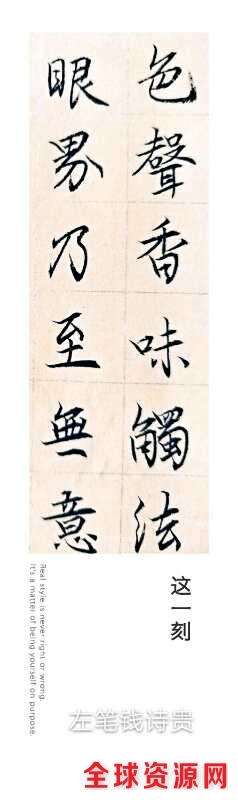 色聲香味觸法
眼界乃至無意
这一刻
Real style is never right or wrong.
It's a matter of being yourself on purpose.
左笔钱诗贵
全球资源网